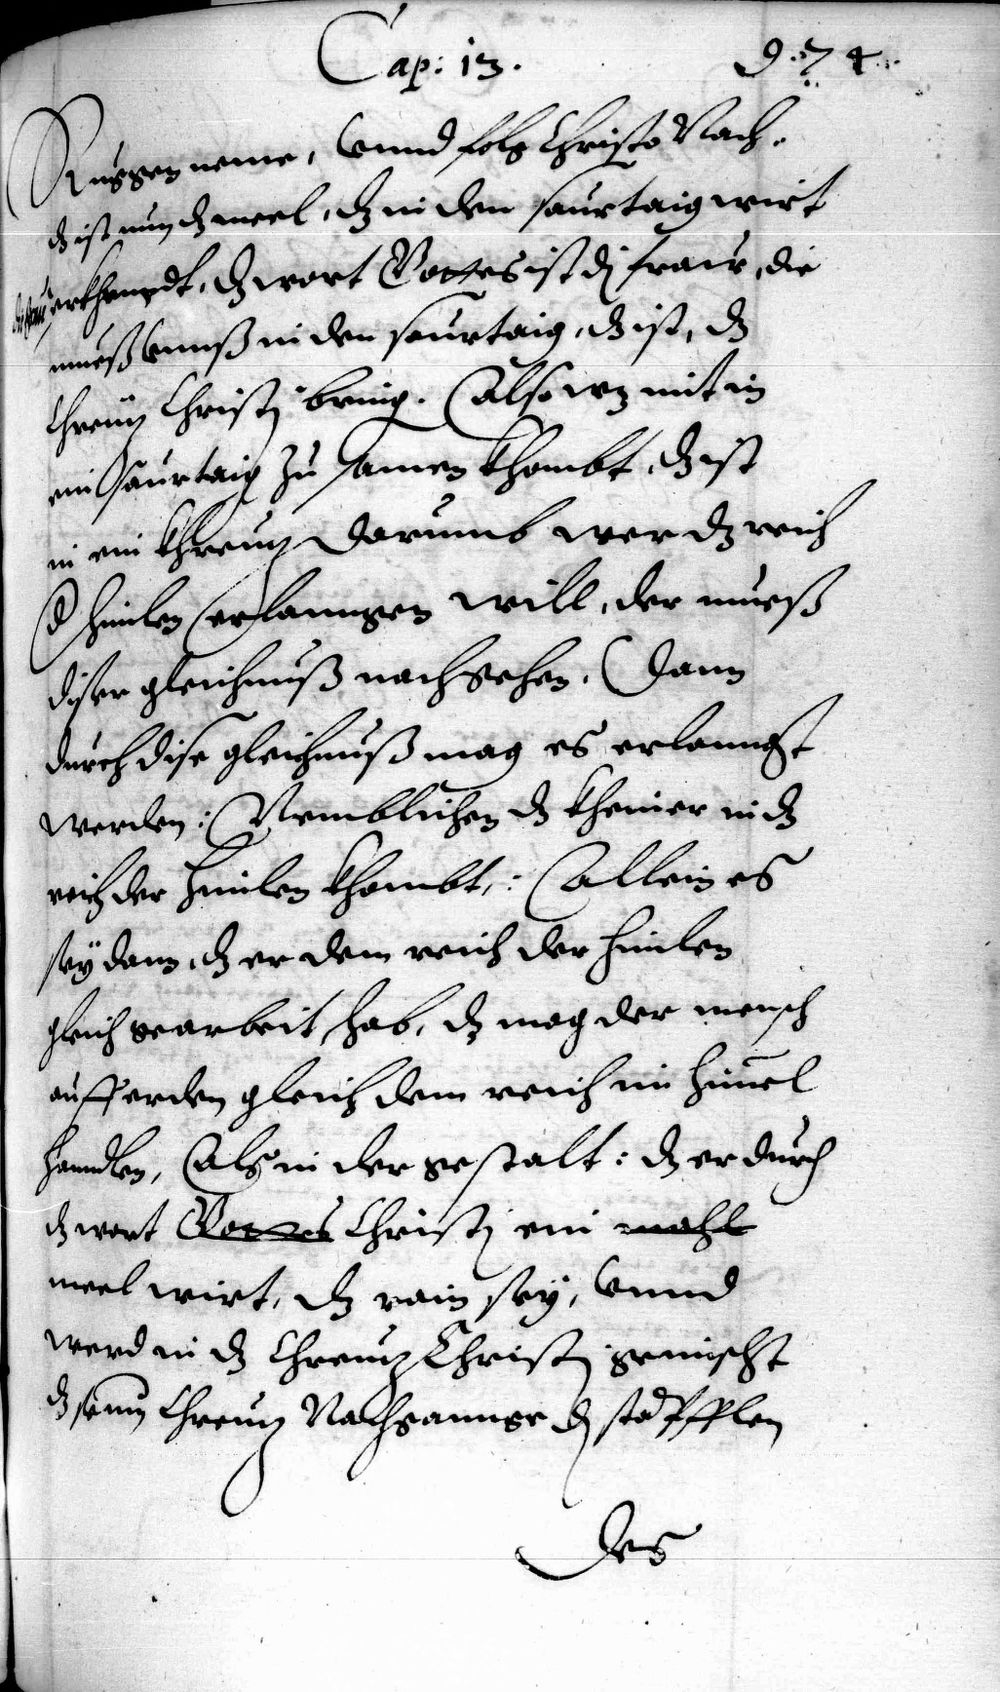 Cap: 13. 974
Ruggen neme, vnnd folg Christo Nach.
dz ist nun dz meel, dz in den saurtaig wirt
verkhnedt, dz wort Gottes ist di fraw, die
mueß vnnß in den saurtaig, dz ist, dz
Chreutz Christj bring. Also wz mit in
ein saurtaig zu samen khombt, dz ist
in ein khreutz Darumb wer dz reich
d himlen erlanngen will, der mueß
diser gleichnuß nachgehen. Dann
durch dise gleichnuß mag es erlanngt
werden: Nemblichen dz kheiner in dz
reich der himlen khombt,: Allein es
sey dann, dz er dem reich der himlen
gleich gearbeit hab, dz mag der mensch
auff erden gleich dem reich im himel
hanndlen, Als in der gestalt: dz er durch
dz wort Gottes Christj ein mahl
meel wirt, dz rain sey, vnnd
werd in dz Chreutz Christj gemischt
dz seim Chreutz Nachganngen di stapfflen
Des